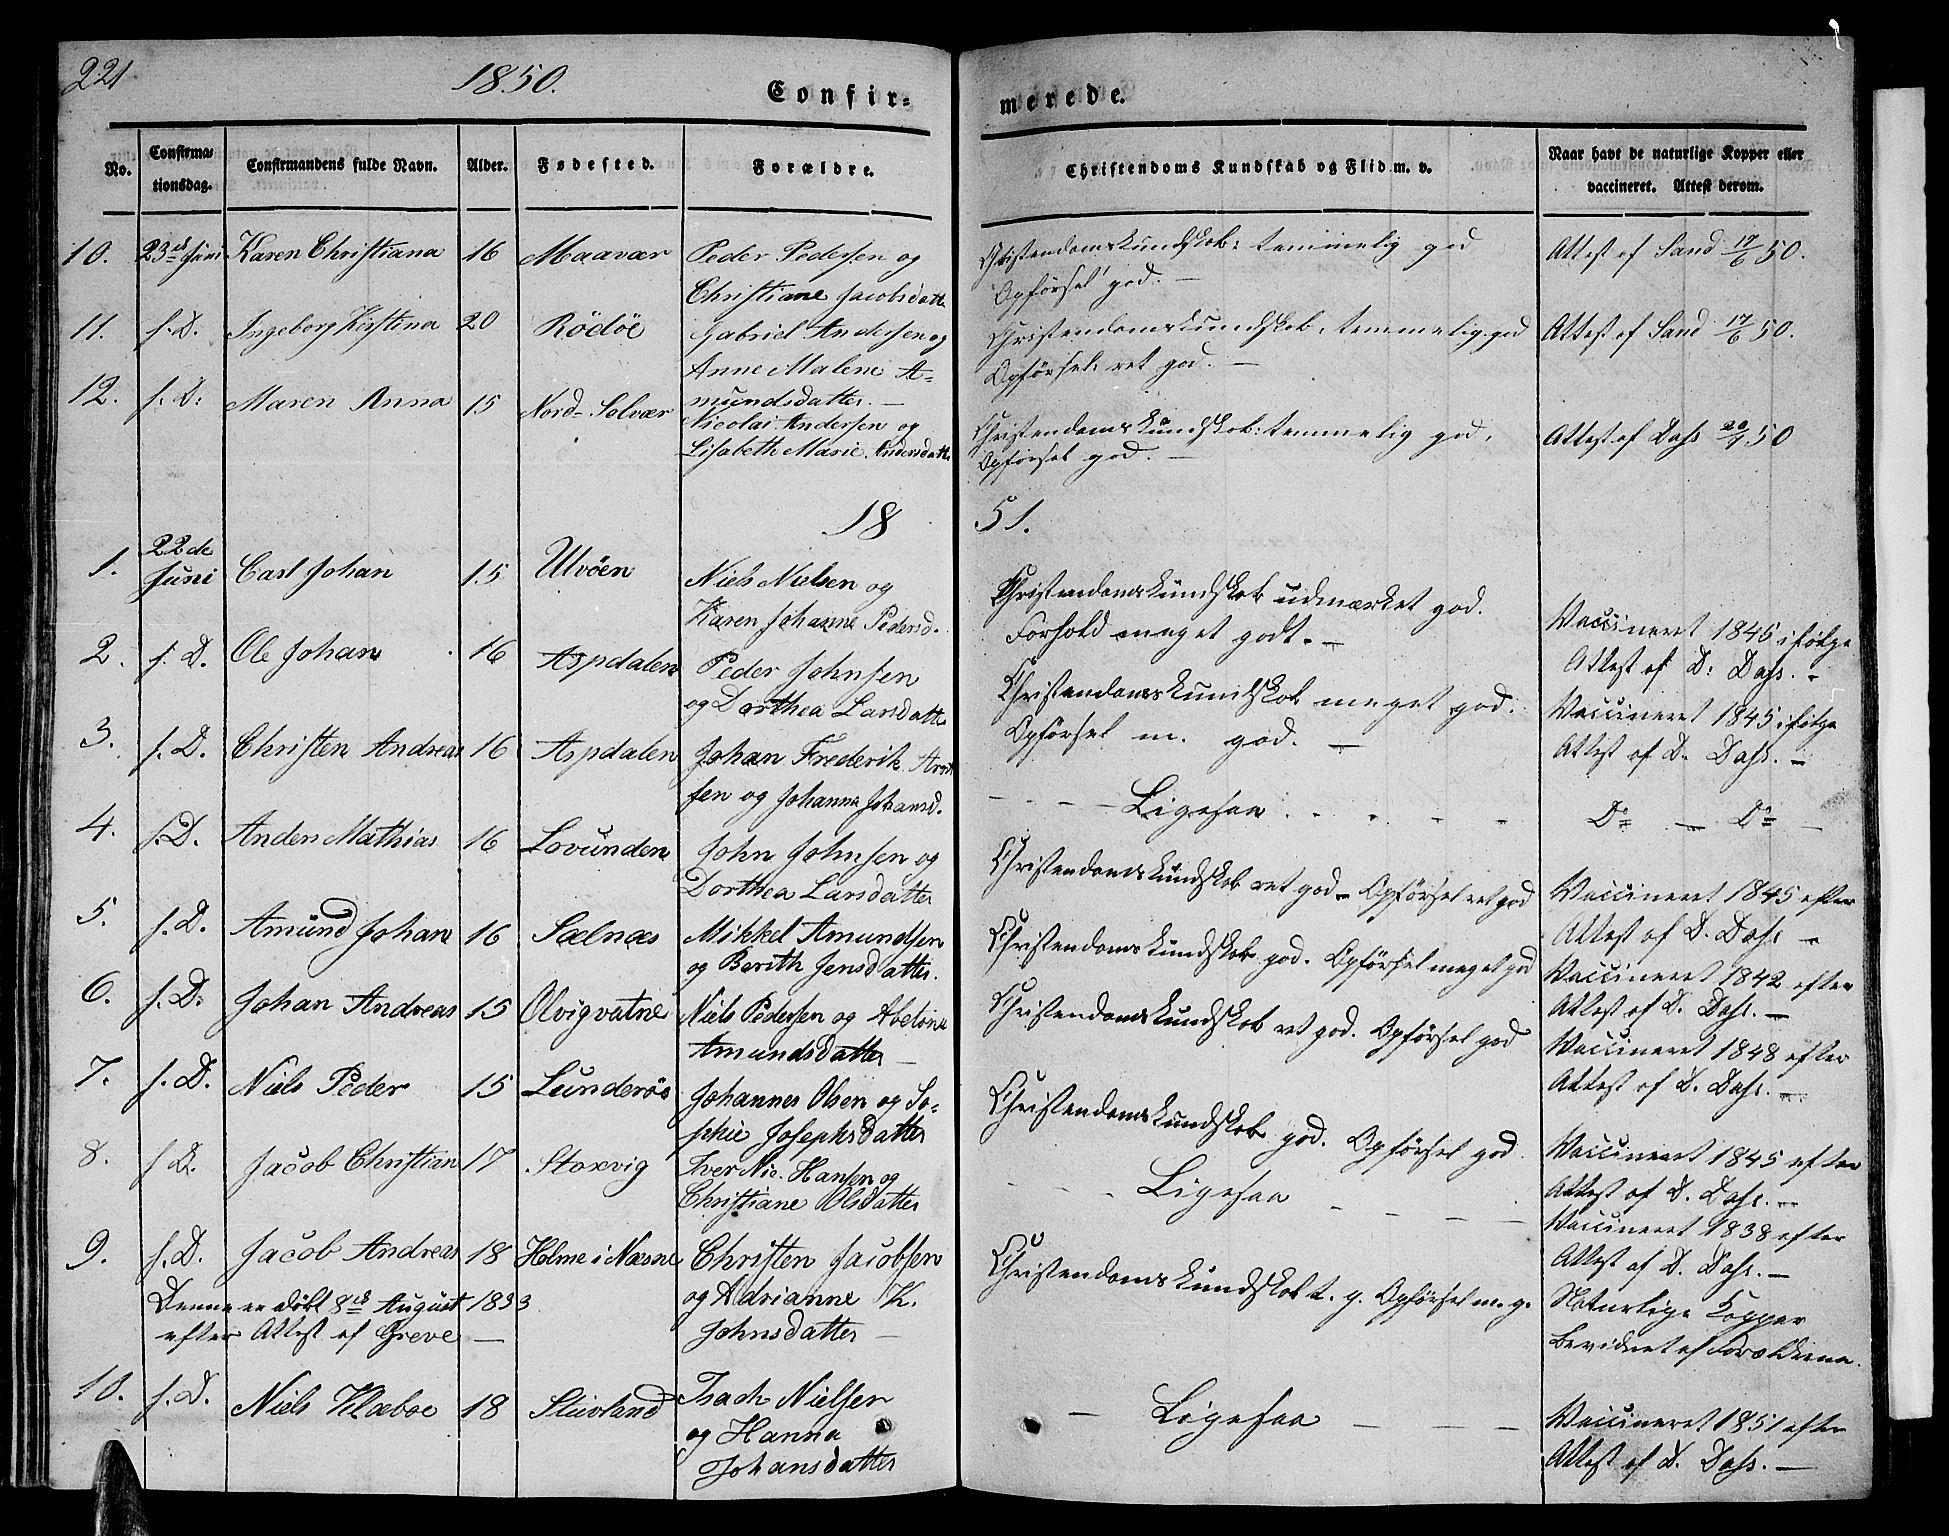 221
1850.
Confir-
merede.
No.
Confirma-
tionsdag.
Confirmandens fulde Navn.
Alder.
Fødested.
Forældre.
Christendoms Kundskab og Flid m. v.
Naar havt de naturlige Kopper eller
vaccineret. Attest derom.
10. 23de Juni Karen Christiana 16 Maavær Peder Pedersen og
Christiane Jacobsdatt.
Christendomskundskab: temmelig god
Opførsel god. —
Attest af Sand 17/6 50.
11. s. D. Ingeborg Kirstina 20 Rödöe Gabriel Andersen og
Anne Malene A-
mundsdatter. —
Christendomskundskab: temmelig god
Opførsel: ret god. —
Attest af Sand 17/6 50.
12. s. D: Maren Anna 15 Nord-Solvær
Nicolai Andersen og
Lisabeth Marie Andersdatt.
Christendomskundskab: temmelig god,
Opførsel god. —
Attest af Dahs 50
18 51.
1. 22de
Juni Carl Johan 15 Ulvöen Niels Nielsen og
Karen Johanne Pedersd.
Christendomskundskab udmærket god.
Forhold meget godt. —
Vaccineret 1845 ifølge
Attest af D: Dahs. —
2. s. D. Ole Johan 16 Aspdalen Peder Johnsen
og Dorthea Larsdatter
Christendomskundskab meget god.
Opførsel m. god. —
Vaccineret 1845 ifølge
Attest af D. Dahs. —
3. s. D. Christen Andreas 16 Aspdalen Johan Frederik
sen og Johanna Johansd.
— — — Ligesaa . . . . .
Do — Do —
4. s. D. Anders Mathias 16 Lovunden John Johnsen og
Dorthea Larsdatter
Christendomskundskab ret god — Opførsel ret god
Vaccineret 1845 efter
Attest af D. Dahs —
5. s. D. Amund Johan 16 Selnæs Mikkel Amundsen
og Berith Jensdatter.
Christendomskundskab god. Opførsel meget god
Vaccineret 1842 efter
Attest af D. Dahs. —
6. s. D. Johan Andreas 15 Olvigvatne Niels Pedersen og Abelone
Amundsdatter —
Christendomskundskab ret god. Opførsel god
Vaccineret 1848 efter
Attest af D. Dahs. —
7. s. D. Niels Peder 15 Lunderös Johannes Olsen og So-
phie Josephsdatter
Christendomskundskab god. Opførsel god.
Vaccineret 1845 efter
Attest af D. Dahs. —
8. s D. Jacob Christian 17 Storvig Iver Nic. Hansen og
Christiane Olsdatter
— — — Ligesaa — — — —
Vaccineret 1838 efter
Attest af D. Dahs. —
9. s. D. Jacob Andreas 18 Holme i Næsne Christen Jacobsen
og Adrianne K.
Johnsdatter —
Denne er döbt 8de August 1833
efter Attest af Greve —
Christendomskundskab t. g. Opførsel m. g.
Naturlige Kopper
bevidnet af Forældrene.
10. s. D. Niels Klæboe 18 Stuvland Isach Nielsen
og Hanna
Johansdatter
— Ligesaa — — —
Vaccineret 1851 efter
Attest af D. Dahs. —